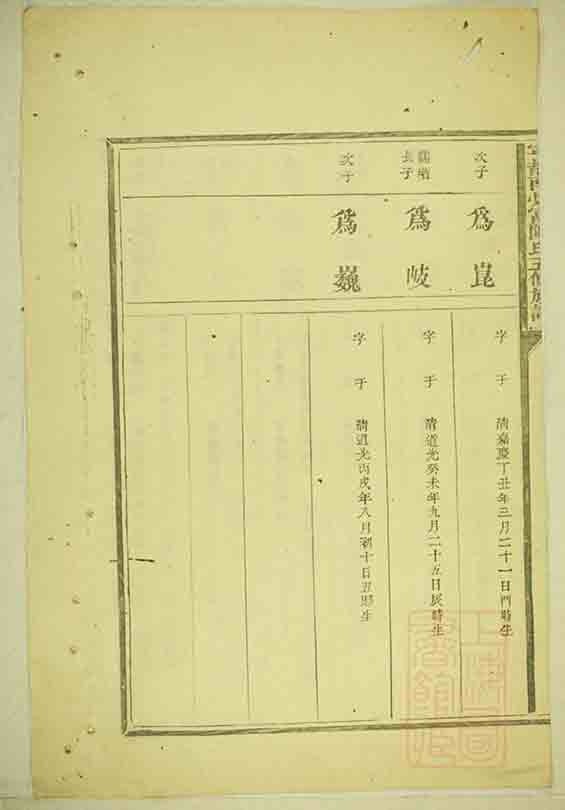 次子
爲崑
字 于 清嘉慶丁丑年三月二十一日酉時生
長子
爲岐
字 于 清道光癸未年九月二十五日辰時生
次子
爲巍
字 于 清道光丙戌年八月初十日丑時生